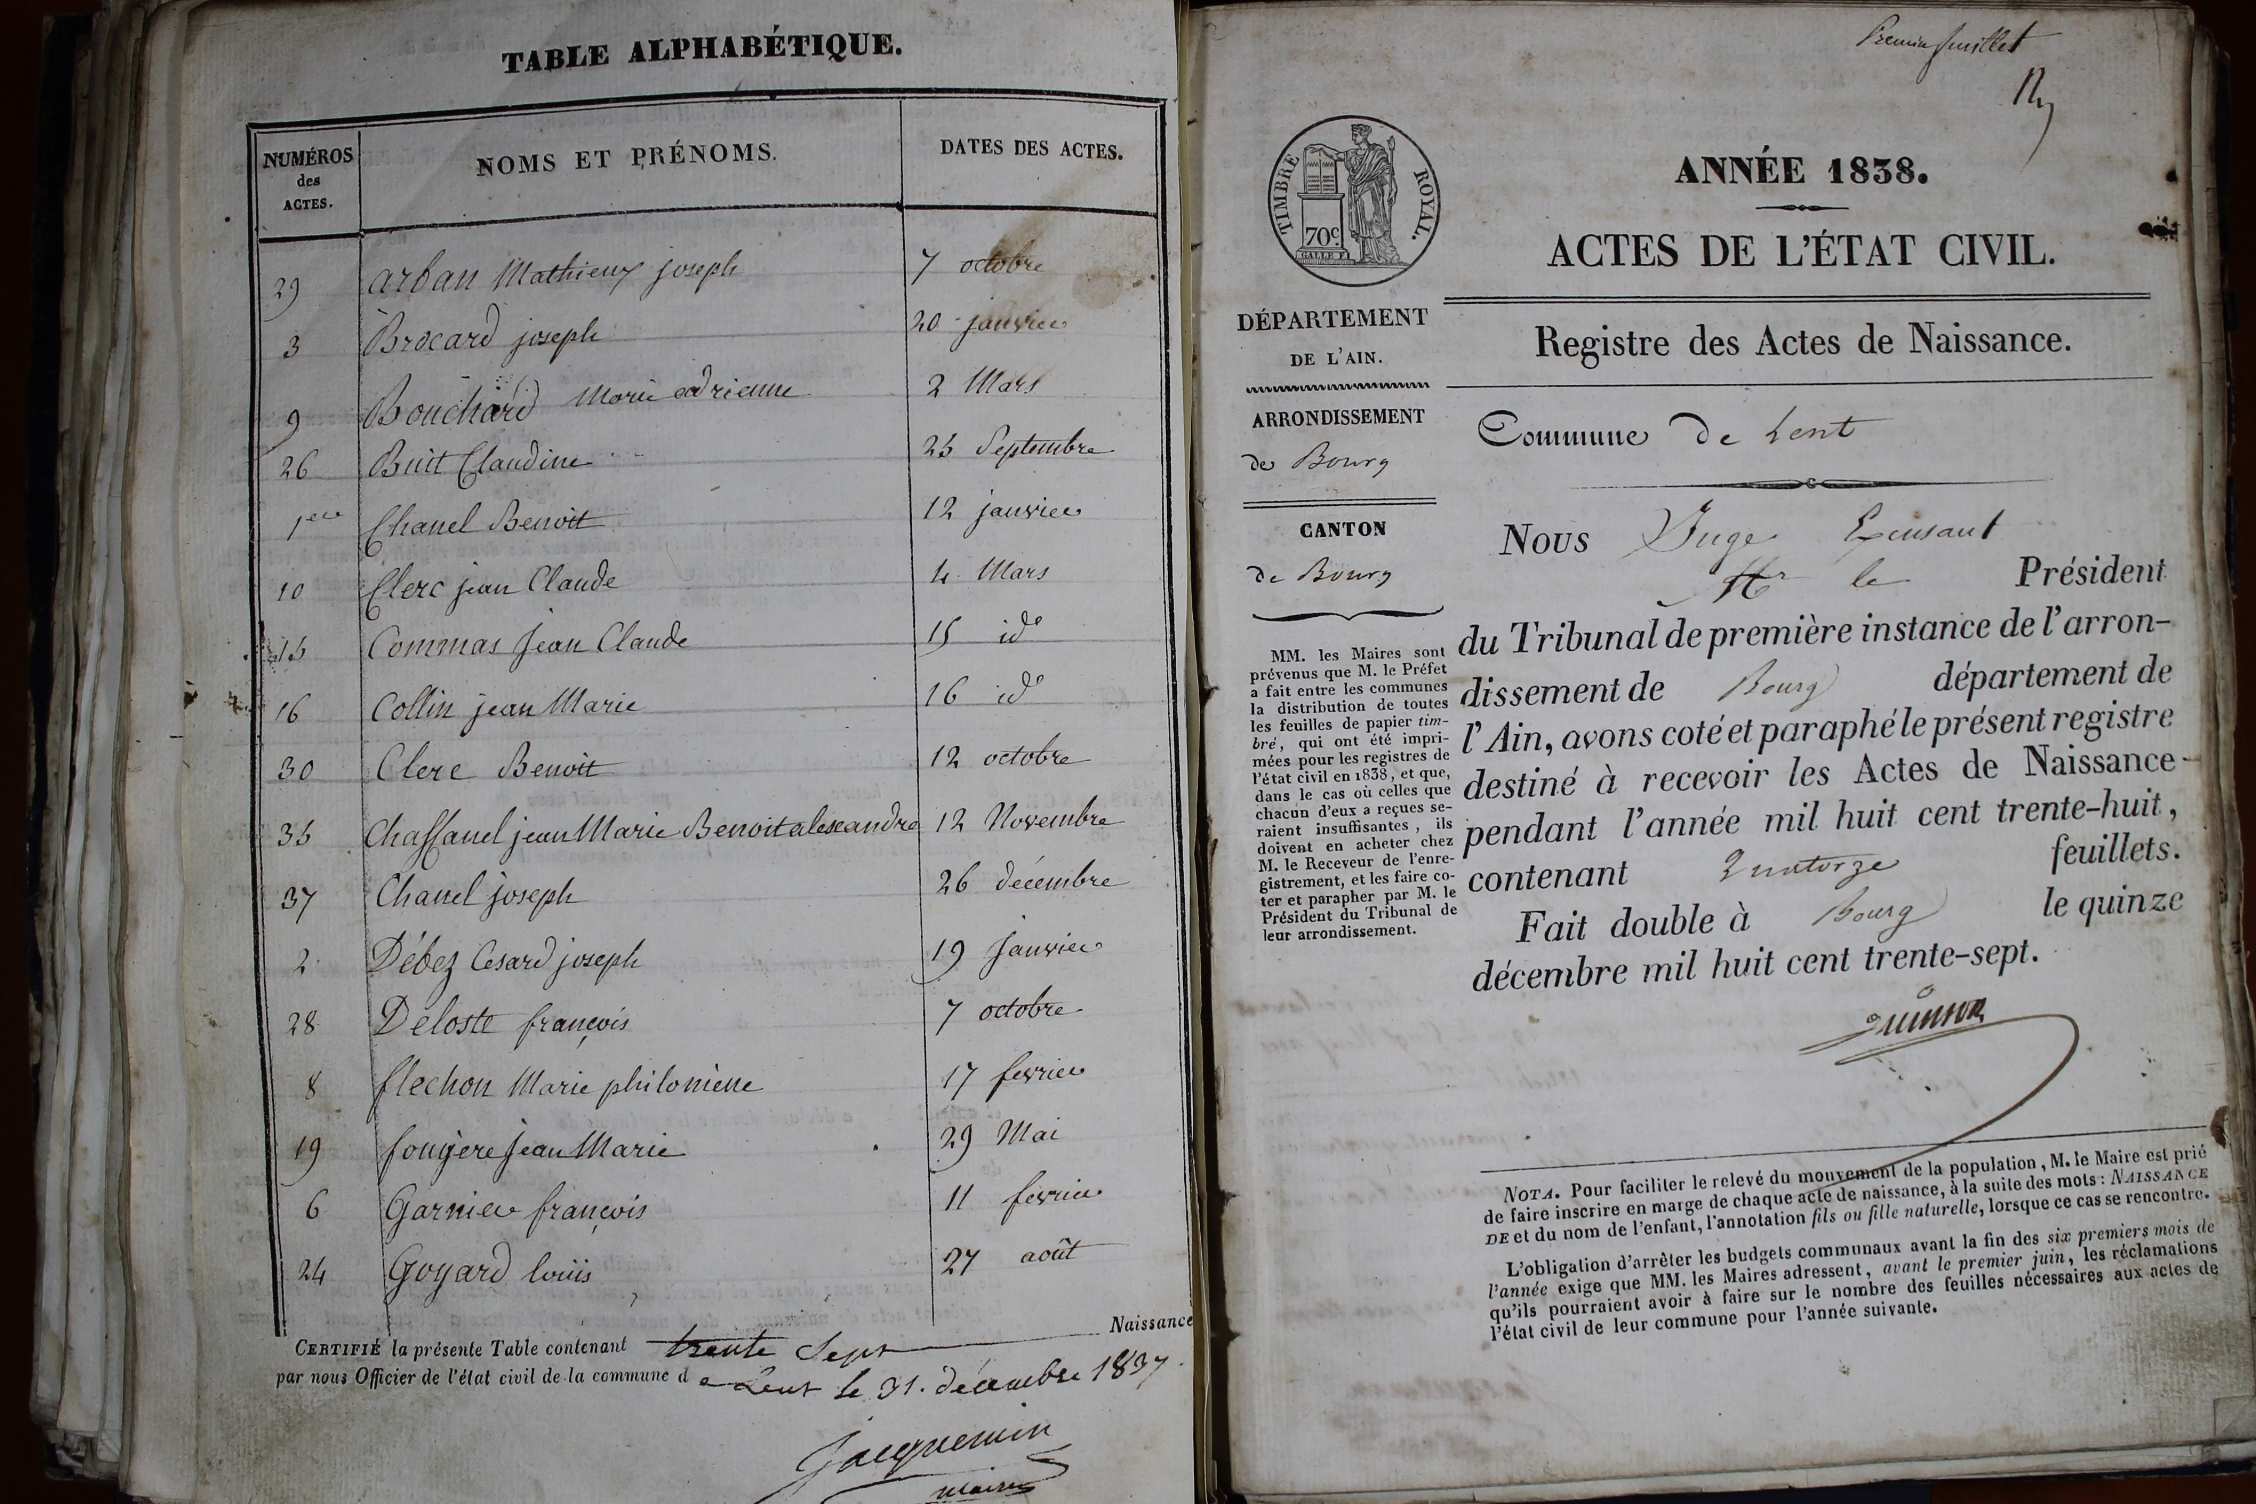 TABLE ALPHABÉTIQUE.
NUMÉROS des ACTES. NOMS ET PRÉNOMS. DATES DES ACTES.
29 arban Mathieux joseph 7 octobre
3 Brocard joseph 20 janvier
9 Bouchard Marie adrienne 2 Mars
26 Buit Claudine 25 Septembre
1ere Chanel Benoit 12 janvier
10 Clerc jean Claude 4 Mars
15 Commas Jean Claude 15 ido
16 Collin jean Marie 16 ido
30 Clerc Benoit 12 octobre
35 Chassanel jean Marie Benoit alexandre 12 Novembre
37 Chanel joseph 26 décembre
2 Débez Cesard joseph 19 Janvier
28 Deloste françois 7 octobre
8 flechon Marie philomene 17 fevrier
19 fougere Jean Marie 29 Mai
6 Garnier françois 11 fevrier
24 Goyard louis 27 août
CERTIFIÉ la présente Table contenant trente Sept Naissance
par nous Officier de l'état civil de la commune de Lent le 31. décembre 1837.
Jacquemin
maire
Premier feuillet
TIMBRE ROYAL.
70c
ANNÉE 1838.
ACTES DE L'ÉTAT CIVIL.
DÉPARTEMENT
DE L'AIN.
ARRONDISSEMENT
de Bourg
CANTON
de Bourg
MM. les Maires sont
prévenus que M. le Préfet
a fait entre les communes
la distribution de toutes
les feuilles de papier tim-
bré, qui ont été impri-
mées pour les registres de
l'état civil en 1838, et que,
dans le cas où celles que
chacun d'eux a reçues se-
raient insuffisantes, ils
doivent en acheter chez
M. le Receveur de l'enre-
gistrement, et les faire co-
ter et parapher par M. le
Président du Tribunal de
leur arrondissement.
Registre des Actes de Naissance.
Commune de Lent
Nous Juge
Mr le Président
du Tribunal de première instance de l'arron-
dissement de Bourg département de
l'Ain, avons coté et paraphé le présent registre
destiné à recevoir les Actes de Naissance
pendant l'année mil huit cent trente-huit,
contenant Quatorze feuillets.
Fait double à Bourg le quinze
décembre mil huit cent trente-sept.
NOTA. Pour faciliter le relevé du mouvement de la population, M. le Maire est prié
de faire inscrire en marge de chaque acte de naissance, à la suite des mots : NAISSANCE
DE et du nom de l'enfant, l'annotation fils ou fille naturelle, lorsque ce cas se rencontre.
L'obligation d'arrêter les budgets communaux avant la fin des six premiers mois de
l'année exige que MM. les Maires adressent, avant le premier juin, les réclamations
qu'ils pourraient avoir à faire sur le nombre des feuilles nécessaires aux actes de
l'état civil de leur commune pour l'année suivante.